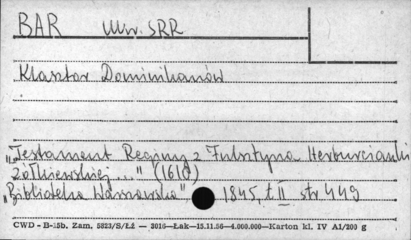 BAR Ukr. SRR
Klasztor Dominikanów
„Testament Reginy z Fulsztyna Herburcianki
Żółkiewskiej..." (1610)
„Biblioteka Warszawska" 1845, t II str 449
CWD - B-15b. Zam. 5823/S/Łż — 3016—Łak—15.11.56—4.000.000—Karton kl. IV A1/200 g